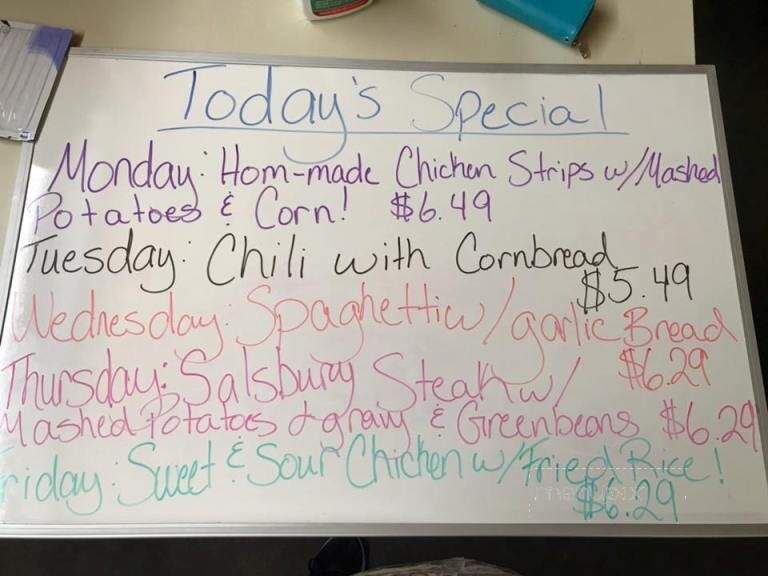 Today's Special
Monday: Hom-made Chicken Strips w/Mashed
Potatoes & Corn! $6.49
Tuesday: Chili with Cornbread
$5.49
Wednesday: Spaghetti w/garlic Bread
$6.29
Thursday: Salsbury Steak w/
Mashed Potatoes & gravy & Greenbeans $6.29
Friday: Sweet & Sour Chicken w/Fried Rice!
$6.29